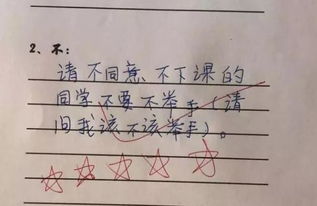 2、不：
请不同意不下课的
同学不要不举手（请
问我该不该举手）。